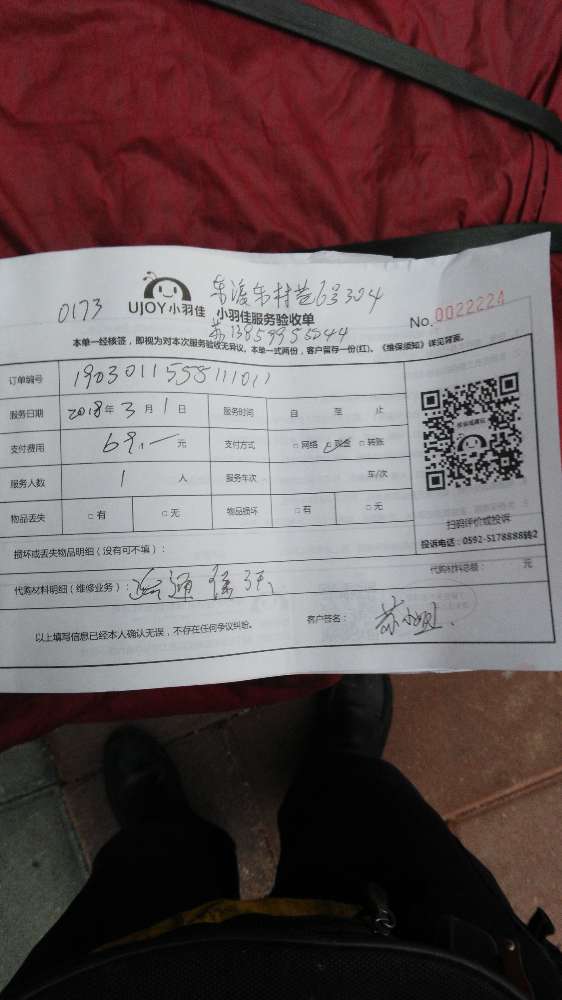 0173
UJOY小羽佳
东渡东村芒63304
小羽佳服务验收单
苏13859955244
No.0022224
本单一经核签,即视为对本次服务验收无异议。本单一式两份,客户留存一份(红)。《维保须知》详见背页。
订单编号 1903011558111011
服务日期 2018年3月1日 服务时间 自 至 止
支付费用 69.— 元 支付方式 □网络 □现金 □转账
服务人数 1 人 服务车次 车/次
物品丢失 □有 □无 物品损坏 □有 □无
扫码评价或投诉
投诉电话:0592-5178888转2
损坏或丢失物品明细(没有可不填):
代购材料明细(维修业务): 疏通 代购材料总额: 元
以上填写信息已经本人确认无误,不存在任何争议纠纷。 客户签名: 苏小姐.